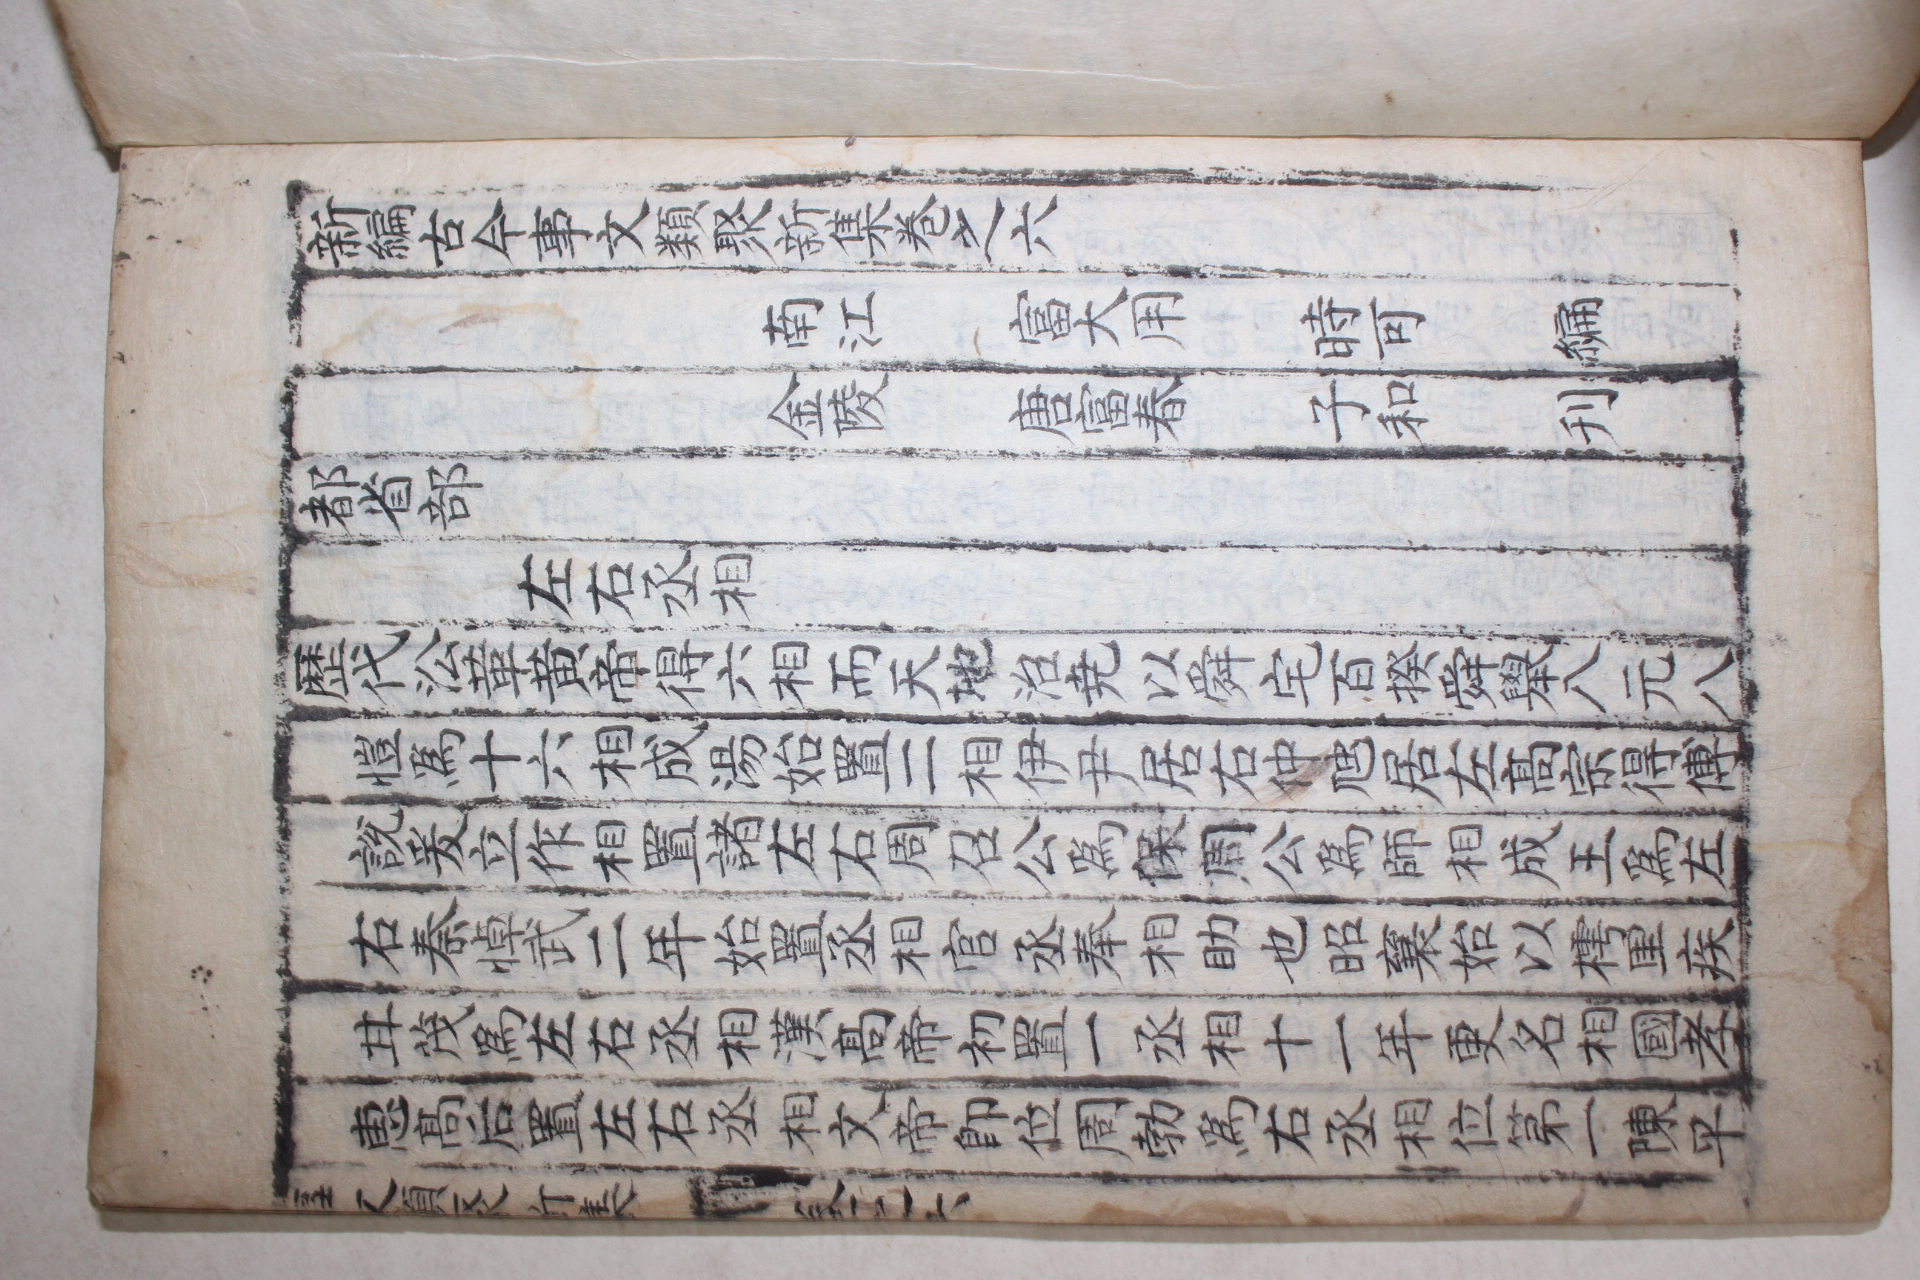 新編古今事文類聚新集卷之六
南江 富大用 時可 編
金陵 唐富春 子和 刊
都省部
左右丞相
歷代㳂革黃帝得六相而天地治尭以舜宅百揆舜舉八元八
愷爲十六相成湯始置二相伊尹居右仲虺居左髙宗得傅
說爰立作相置諸左右周召公爲保周公爲師相成王爲左
右秦悼武二年始置丞相官丞奉相助也昭襄始以樗里疾
甘茂爲左右丞相漢髙帝初置一丞相十一年更名相國孝
惠髙后置左右丞相文帝即位周勃爲右丞相位第一陳平
事文類聚 新集 卷之六